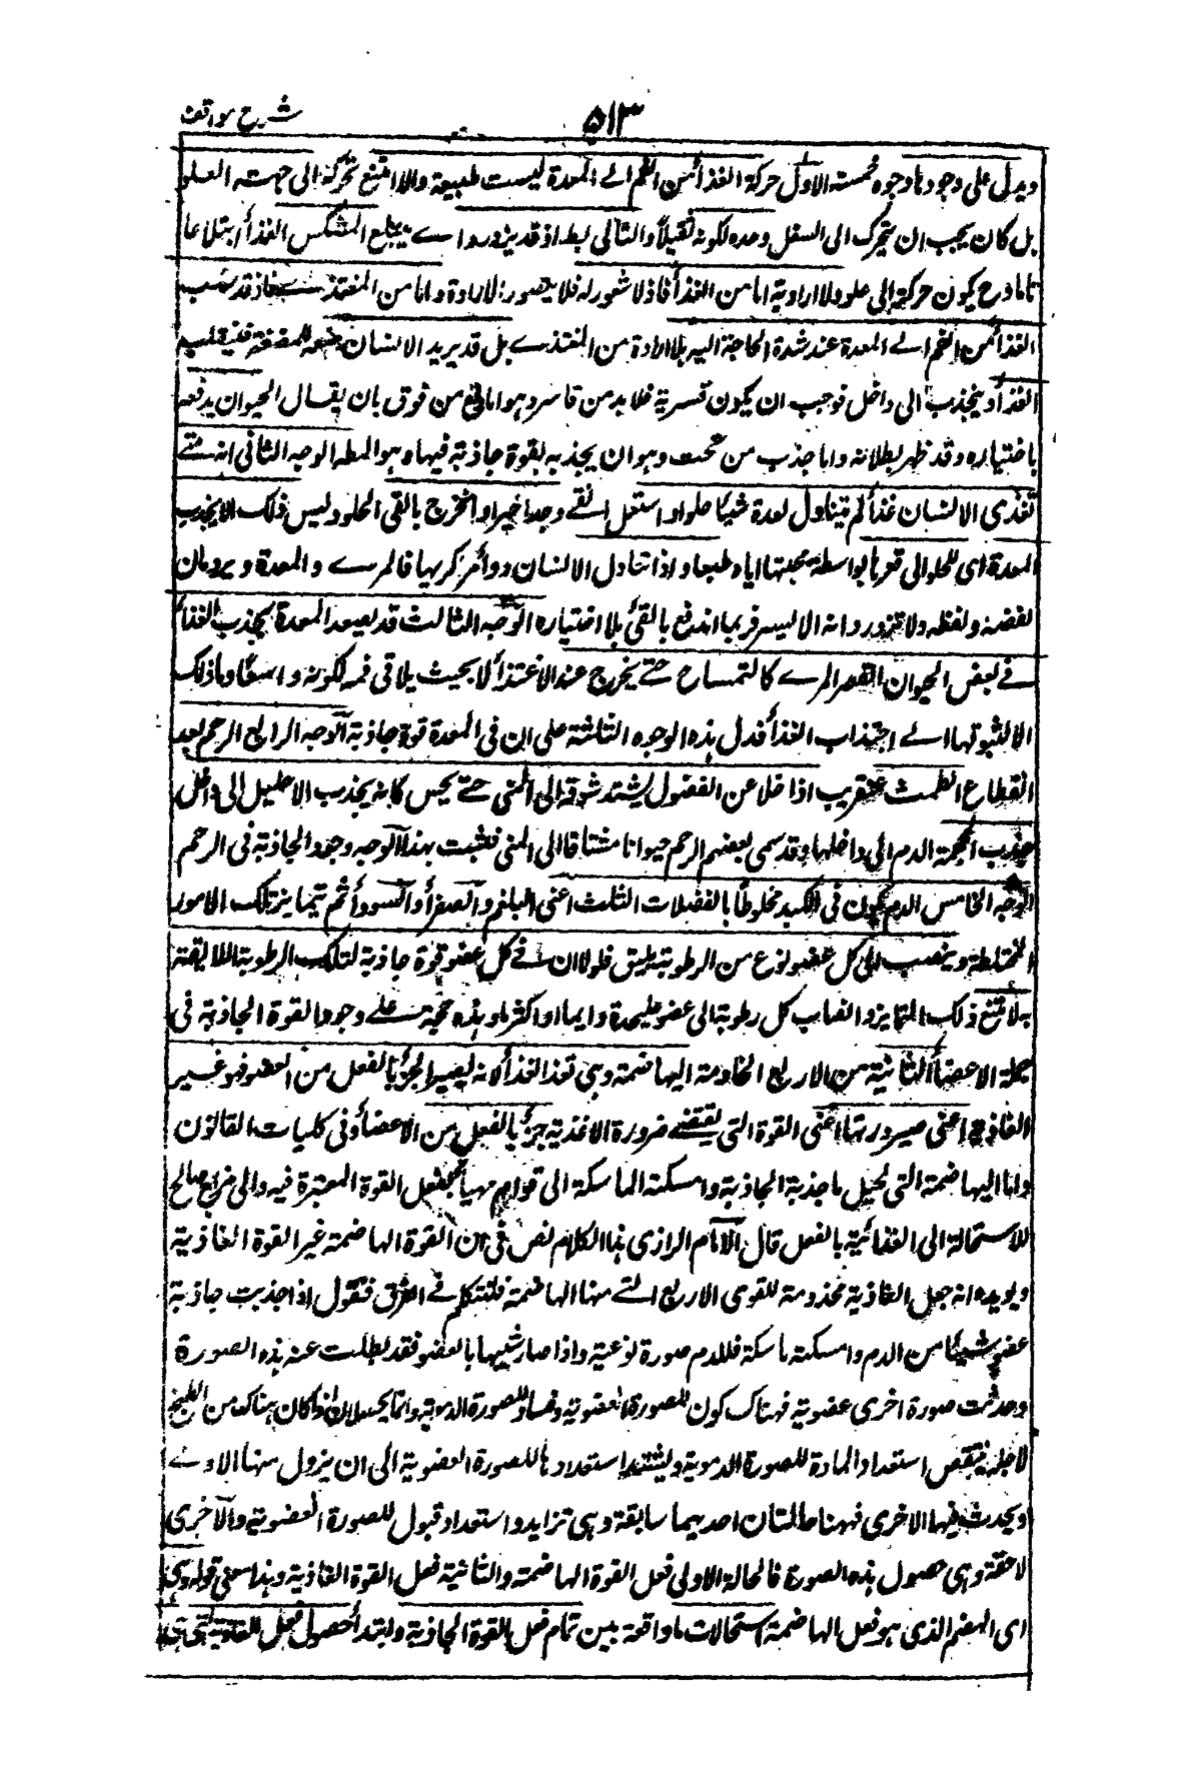 شرح مواقف
۵۱۳
ويدل على وجودها وجوه خمسة الاول حركة الغذأ من الفم الے المعدة ليست طبيعية والا امتنع تحركه الى جهته العلو
بل كان يجب ان يتحرك الى السفل وحده لكونه ثقيلاً والتالى بط اذ قد يزدرد اے يبتلع المنتكس الغذأ ابتلاعا
تاما وح يكون حركته الى علو ولا ارادية اما من الغذأ فاذ لا شعور له فلا يتصور الارادة واما من المغتذے فاذ قد
الغذأ من الفم الے المعدة عند شدة الحاجة اليه بلا ارادة من المغتذے بل قد يريد الانسان للمضغة فيغلبه
الغذأ وينجذب الى داخل فوجب ان يكون قسرية فلا بد من قاسر وهو اما دافع من فوق بان يقال الحيوان يدفعه
باختياره وقد ظهر بطلانه واما جذب من تحت وهو ان يجذبه بقوة جاذبة فيها وهو المط الوجه الثانى انه متے
تغذى الانسان غذأ ثم تناول بعدة شيئا حلوا واستعمل القے وجد اخيرا والخرج بالقى الحلو وليس ذلك الا يجذب
المعدة اى للحلو الى قعرها بواسطة محبتها اياه طبعا واذا تناول الانسان دوأ مر كريها فالمرے والمعدة يرومان
نفضه ولفظه ولا تزدردانه الا ليسر فربما اندفع بالقئ بلا اختياره الوجه الثالث قد يصعد المعدة لجذب الغذأ
فے بعض الحيوان القصر المرے كالتمساح حتے يخرج عند الاغتذأ لا بحيث يلاقى فمه لكونه واسعًا وما ذلك
الا لشوقها الے اجتذاب الغذأ فدل هذه الوجوه الثلثة على ان فى المعدة قوة جاذبة الوجه الرابع الرحم بعد
انقطاع الطمث عنقريب اذا خلا عن الفضول يشتد شوقه الى المنى حتے يحس كانه يجذب الاحليل الى داخل
جذب المحجمة الدم الى داخلها وقد سمى بعضهم الرحم حيوانا مشتاقا الى المنى فثبت بهذا الوجه وجود الجاذبة فى الرحم
الوجه الخامس الدم يكون فى الكبد مخلوطًا بالفضلات الثلث اعنى البلغم والصفرأ والسودأ ثم يتمايز تلك الامور
المختلطة وينصب الى كل عضو نوع من الرطوبة يليق فلولا ان فے كل عضو قوة جاذبة لتلك الرطوبة اللايقة
به لا متنع ذلك التمايز وانصاب كل رطوبة الى عضو عليحدة دايما او اكثريا وهذه حجة علے وجود القوة الجاذبة فى
جملة الاعضأ الثانية من الاربع الخادمة الهاضمة وهى تعد الغذأ لانه يصير الجزأ بالفعل من العضو فهو غير
الغاذية اعنى صيرورتها اعنى القوة التى يقتضے ضرورة الاغذية جزأ بالفعل من الاعضأ وفى كليات القانون
واما الهاضمة التى تحيل ما جذبته الجاذبة وامسكته الماسكة الى قوام مهيأ لفعل القوة المغيرة فيه والى مزاج صالح
للاستحالة الى الغذائية بالفعل قال الامام الرازى هذا الكلام نص فى ان القوة الهاضمة غير القوة الغاذية
ويويده انه جعل الغاذية مخدومة للقوى الاربع التے منها الهاضمة فلنتكلم فے الفرق فنقول اذا جذبت جاذبة
عضو شيئا من الدم وامسكته ماسكة فللدم صورة نوعية واذا صار شبيها بالعضو فقد بطلت عنه هذه الصورة
وحدثت صورة اخرى عضوية فهناك كون للصورة العضوية وفساد للصورة الدموية وانما يحصلان اذا كان هناك من الطبخ
لاجله ينتقص استعداد المادة للصورة الدموية ويشتد استعدادها للصورة العضوية الى ان يزول منها الاولے
ويحدث فيها الاخرى فههنا حالتان احديهما سابقة وهى تزايد استعداد قبول للصورة العضوية والاخرى
لاحقة وهى حصول هذه الصورة فالحالة الاولى فعل القوة الهاضمة والثانية فعل القوة الغاذية وهذا معنى قوله وهى
اى الهضم الذى هو فعل الهاضمة استحالات ما واقعة بين تمام فعل القوة الجاذبة وابتدأ حصول فعل الغاذية